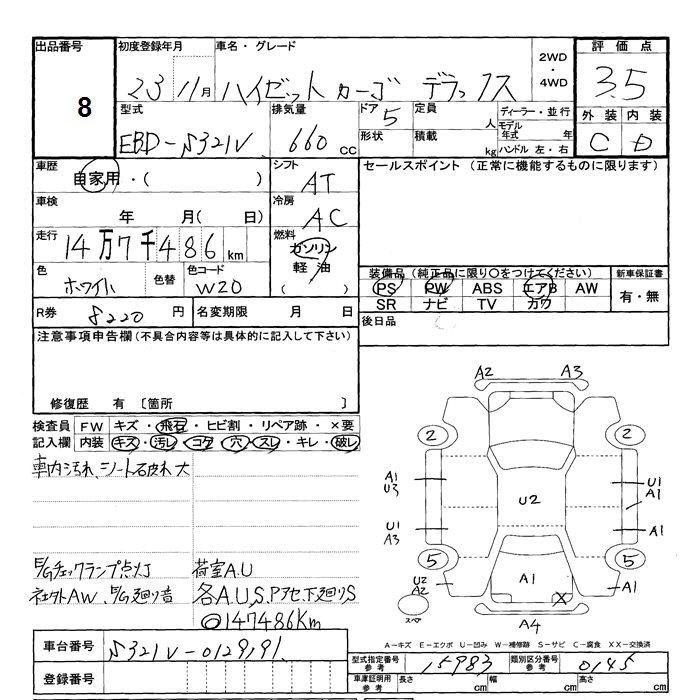 出品番号 初度登録年月 車名・グレード 2WD・4WD 評価点
8 23 11月 ハイゼット カーゴ デラックス 3.5
型式 排気量 ドア 5 定員 人 ディーラー・並行 外装 内装
EBD-S321V 660cc 形状 積載 kg モデル年式 年 ハンドル 左・右 C D
車歴 自家用・( ) シフト AT セールスポイント (正常に機能するものに限ります)
車検 年 月( 日) 冷房 AC
走行 14万7千486km 燃料 ガソリン 軽油 ( )
色 ホワイト 色替 色コード W20
装備品 (純正品に限り○をつけてください) 新車保証書
PS PW ABS エアB AW 有・無
SR ナビ TV カワ
R券 8220円 名変期限 月 日 後日品
注意事項申告欄(不具合内容等は具体的に記入して下さい)
修復歴 有 〔箇所 〕
検査員 FW キズ・飛石・ヒビ割・リペア跡・×要
記入欄 内装 キズ・汚レ・コゲ・穴・スレ・キレ・破レ
車内汚れ、シート破れ大
E/Gチェックランプ点灯 荷室A.U
社外AW、E/G廻り音 各A.U.S.Pヨゴレ、下廻りS
@147486Km
A2 A3
2 2
A1 U3 U1 A1
U2
U1 A3 A1
5 5
U2 A2 A1 X A1
スペア A4
A−キズ E−エクボ U−凹み W−補修跡 S−サビ C−腐食 XX−交換済
車台番号 S321V-0129191
登録番号
型式指定番号 参考 15983 類別区分番号 参考 0145
車庫証明用 参考 長さ cm 幅 cm 高さ cm